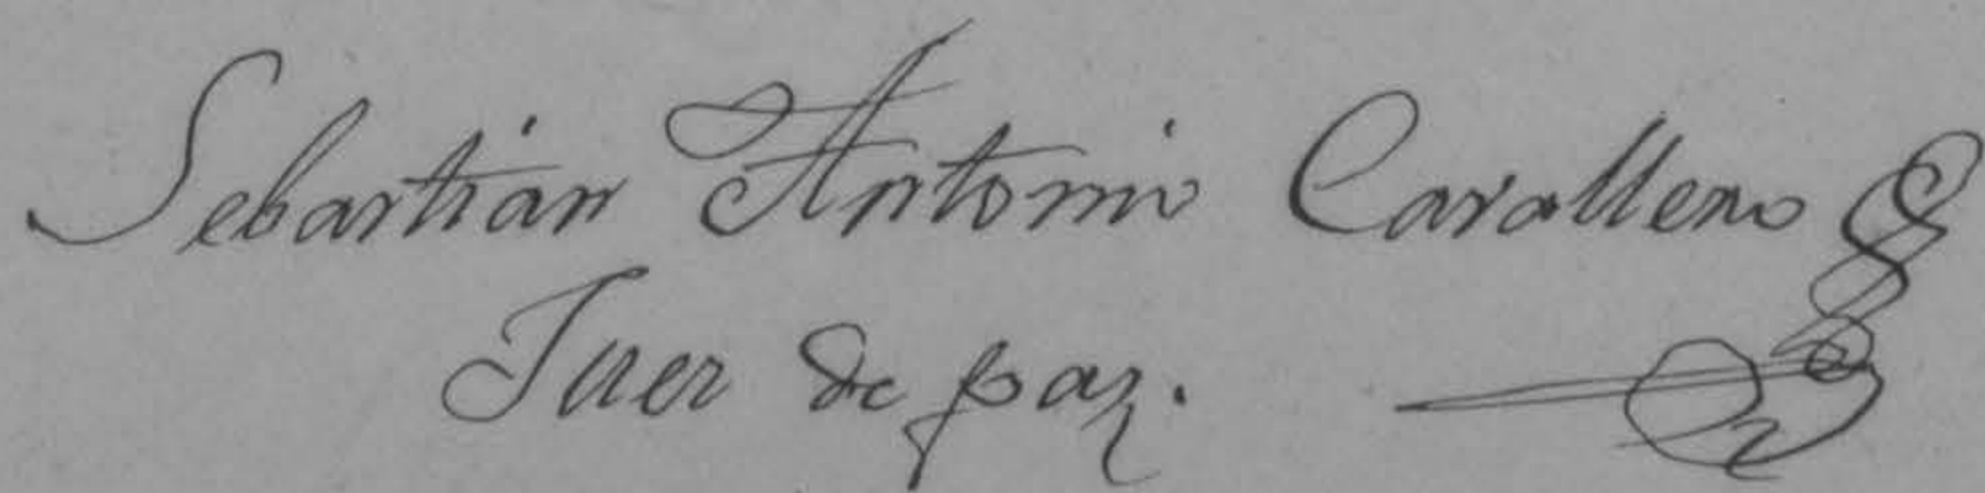 Sebastián Antonio Cavallero
Juez de paz.